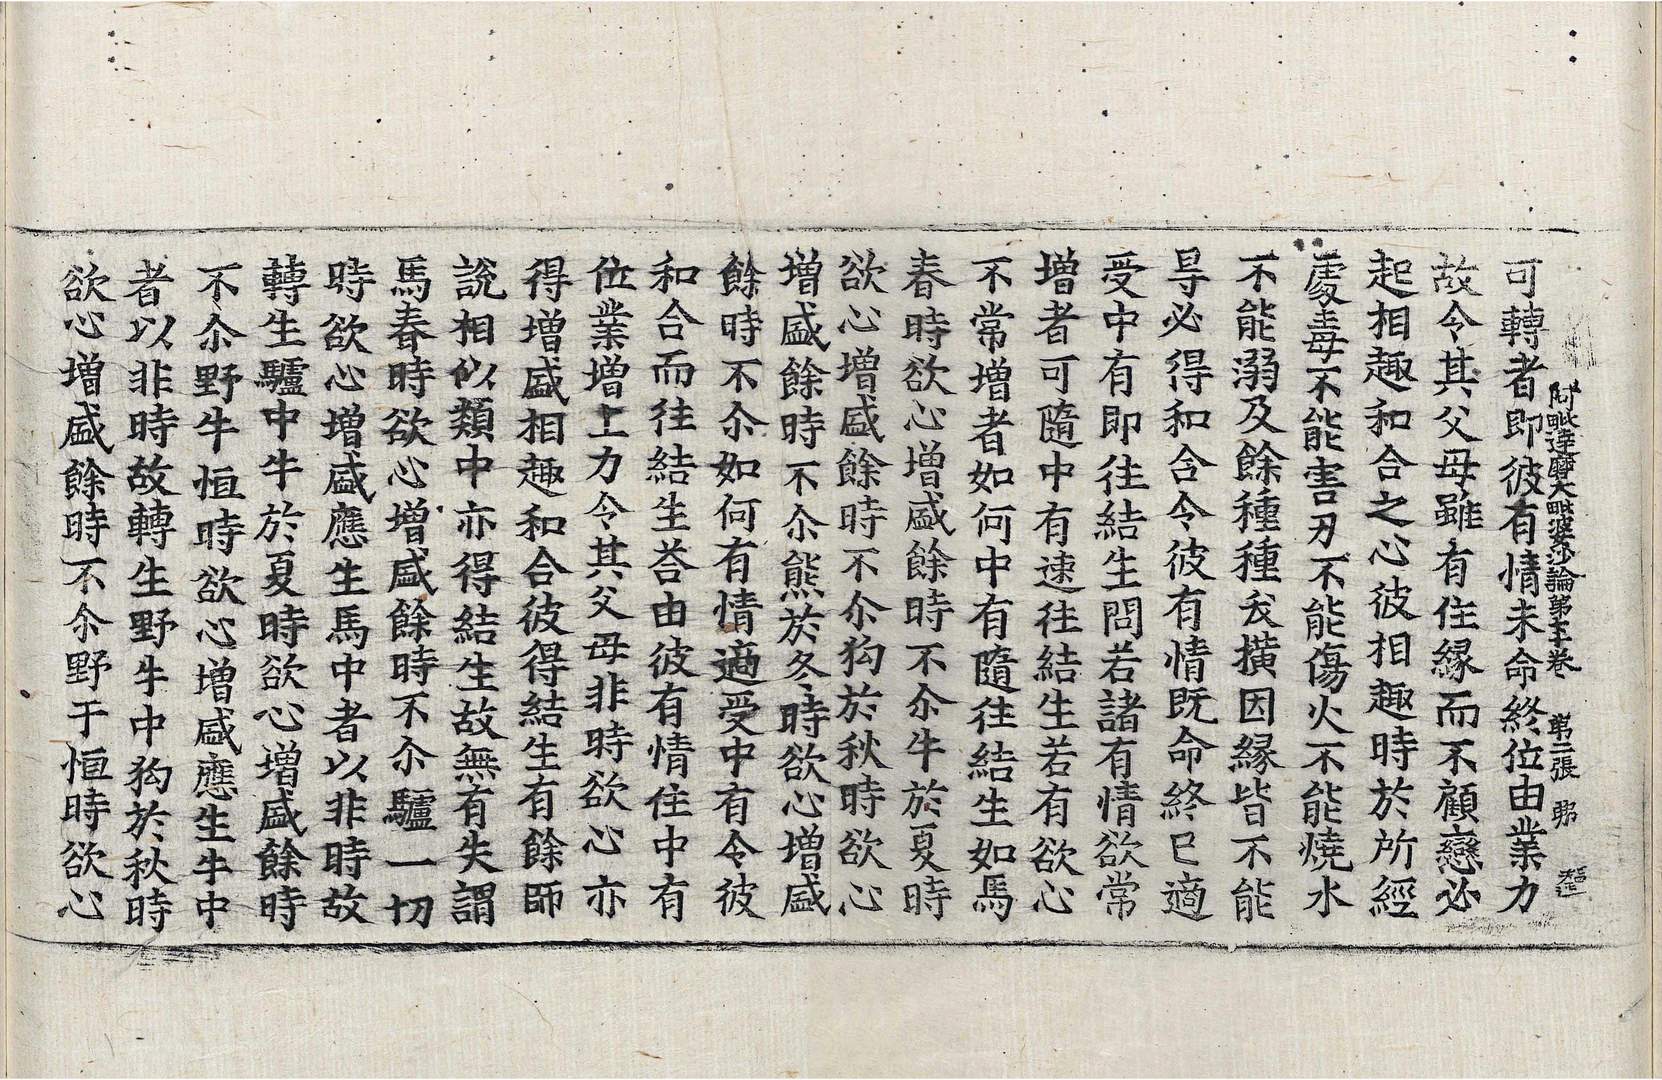 阿毗達磨大毗婆沙論第卷 第二張
可轉者即彼有情未命終位由業力
故令其父母雖有住緣而不顧戀必
起相趣和合之心彼相趣時於所經
處毒不能害刃不能傷火不能燒水
不能溺及餘種種夭橫因緣皆不能
㝵必得和合令彼有情既命終已適
受中有即往結生問若諸有情欲常
增者可隨中有速往結生若有欲心
不常增者如何中有隨往結生如馬
春時欲心增盛餘時不尒牛於夏時
欲心增盛餘時不尒狗於秋時欲心
增盛餘時不尒熊於冬時欲心增盛
餘時不尒如何有情適受中有令彼
和合而往結生荅由彼有情住中有
位業增上力令其父母非時欲心亦
得增盛相趣和合彼得結生有餘師
說相似類中亦得結生故無有失謂
馬春時欲心增盛餘時不尒驢一切
時欲心增盛應生馬中者以非時故
轉生驢中牛於夏時欲心增盛餘時
不尒野牛恒時欲心增盛應生牛中
者以非時故轉生野牛中狗於秋時
欲心增盛餘時不尒野干恒時欲心